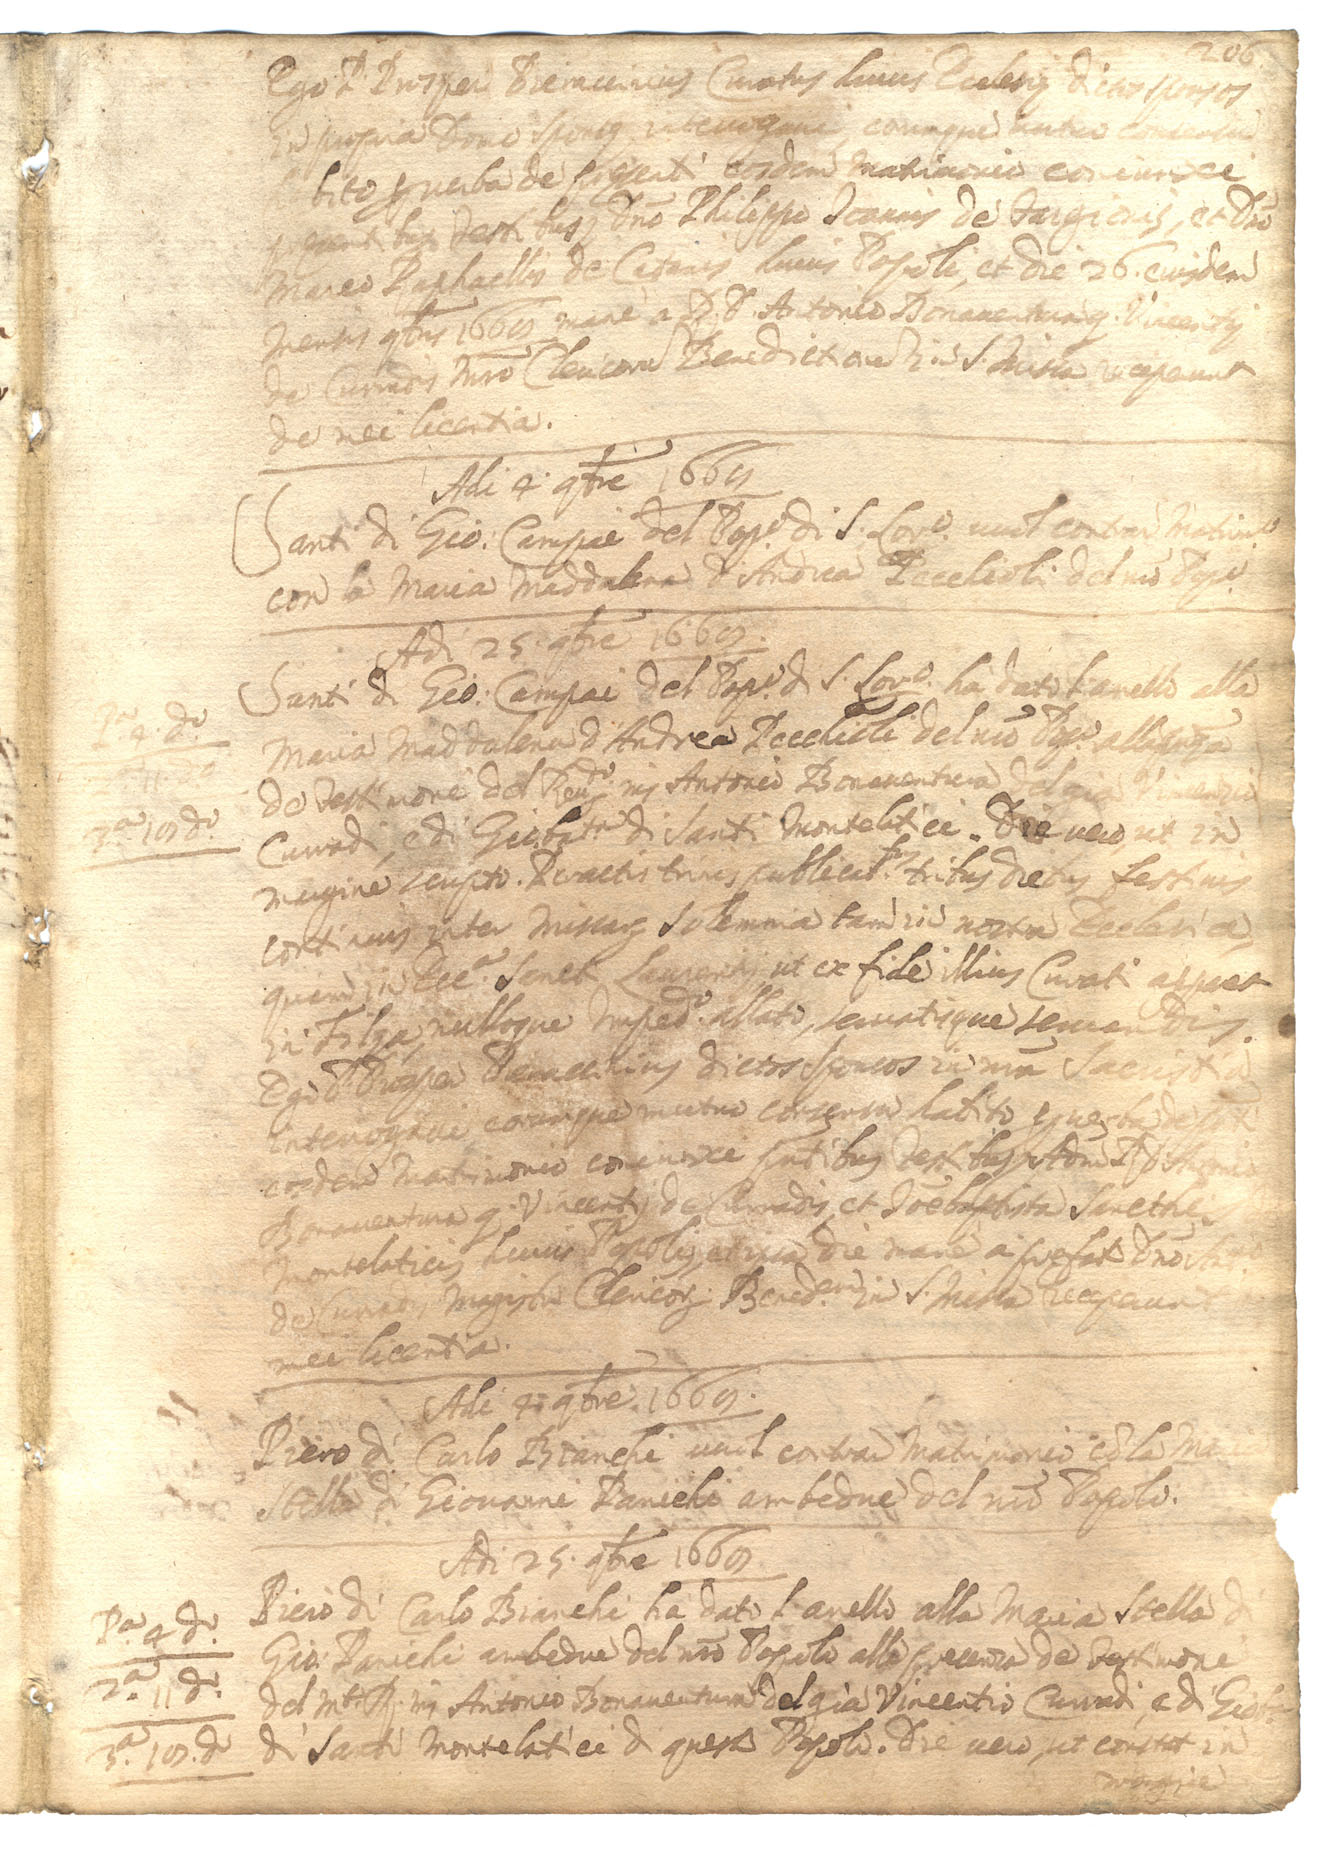 206
Ego P. Prosper Pieraccinius Curatus huius Ecclesię dictos sponsos
in propria Domo sponsę interrogavi, eorumque mutuo consensu
bito p verba de pręsenti eosdem matrimonio coniunxi
pręsentibus testibus Dno Philippo Ioannis de Targionis, et Dno
Marco Raphaellis de huius Popoli, et die 26 eiusdem
mensis 9bris 1669 mane a P. P. Antonio Bonaventura q. Vincentij
de Curradis Mro Clericorũ Benedictionẽ in S. Missa receperunt
de mei licentia.
Adi 4. 9bre 1669
Santi di Gio: Campai del Popo. di S. Loro. vuol contrar Matrimo.
con la Maria Maddalena d'Andrea Pecchioli del nro Popo.
Adi 25. 9bre 1669.
Santi di Gio: Campai del Popo. di S. Loro. ha dato l'anello alla
Pa. 4. do.
Maria Maddalena d'Andrea Pecchioli del nro Popo. alla pręza
2a 11. do
de testimoni del Revdo. mr Antonio Bonaventura del già Vincenzio
3a. 10. do.
Curradi, e di Gio:batta di Santi Montelatici. Die vero, ut in
margine scripto. Peractis trinis publicatbus. tribus diebus festivis
continuis inter Missarũ Solemnia tam in nostra Ecclesia,
quam in Ecca. Sancti Laurentij ut ex fide illius Curati apparet
in Filza, nulloque Impedo. allato, servatisque servandis.
Ego P. Prosper Pieraccinius dictos sponsos in nra Sacristia
interrogavi eorumque mutuo consensu habito p verba de pnti
eosdem matrimonio coniunxi pntibus testibus Adm. P. D. Antonio
Bonaventura q. Vincentij de Curradis, et Ioebaptista Sancthis
Montelaticis huius Popoli, et ipsa die mane a prefato Dno
de Curradis Magistro Clericorũ Benednem in S. Missa receperunt
mei licentia.
Adi 4. 9bre. 1669.
Piero di Carlo Bianchi vuol contrar Matrimonio cõ la Maria
Stella di Giovanni Panichi ambedue del nro Popolo.
Adi 25. 9bre 1669
Piero di Carlo Bianchi ha dato l'anello alla Maria Stella di
Pa. 4 do.
Gio: Panichi ambedue del nro Popolo alla presenza de testimoni
2a. 11 do.
del mto R. mr Antonio Bonaventura del già Vincentio Curradi, e di Giobatta
3a. 10. do
di Santi Montelatici di questo Popolo. Die vero, ut constat in
margine